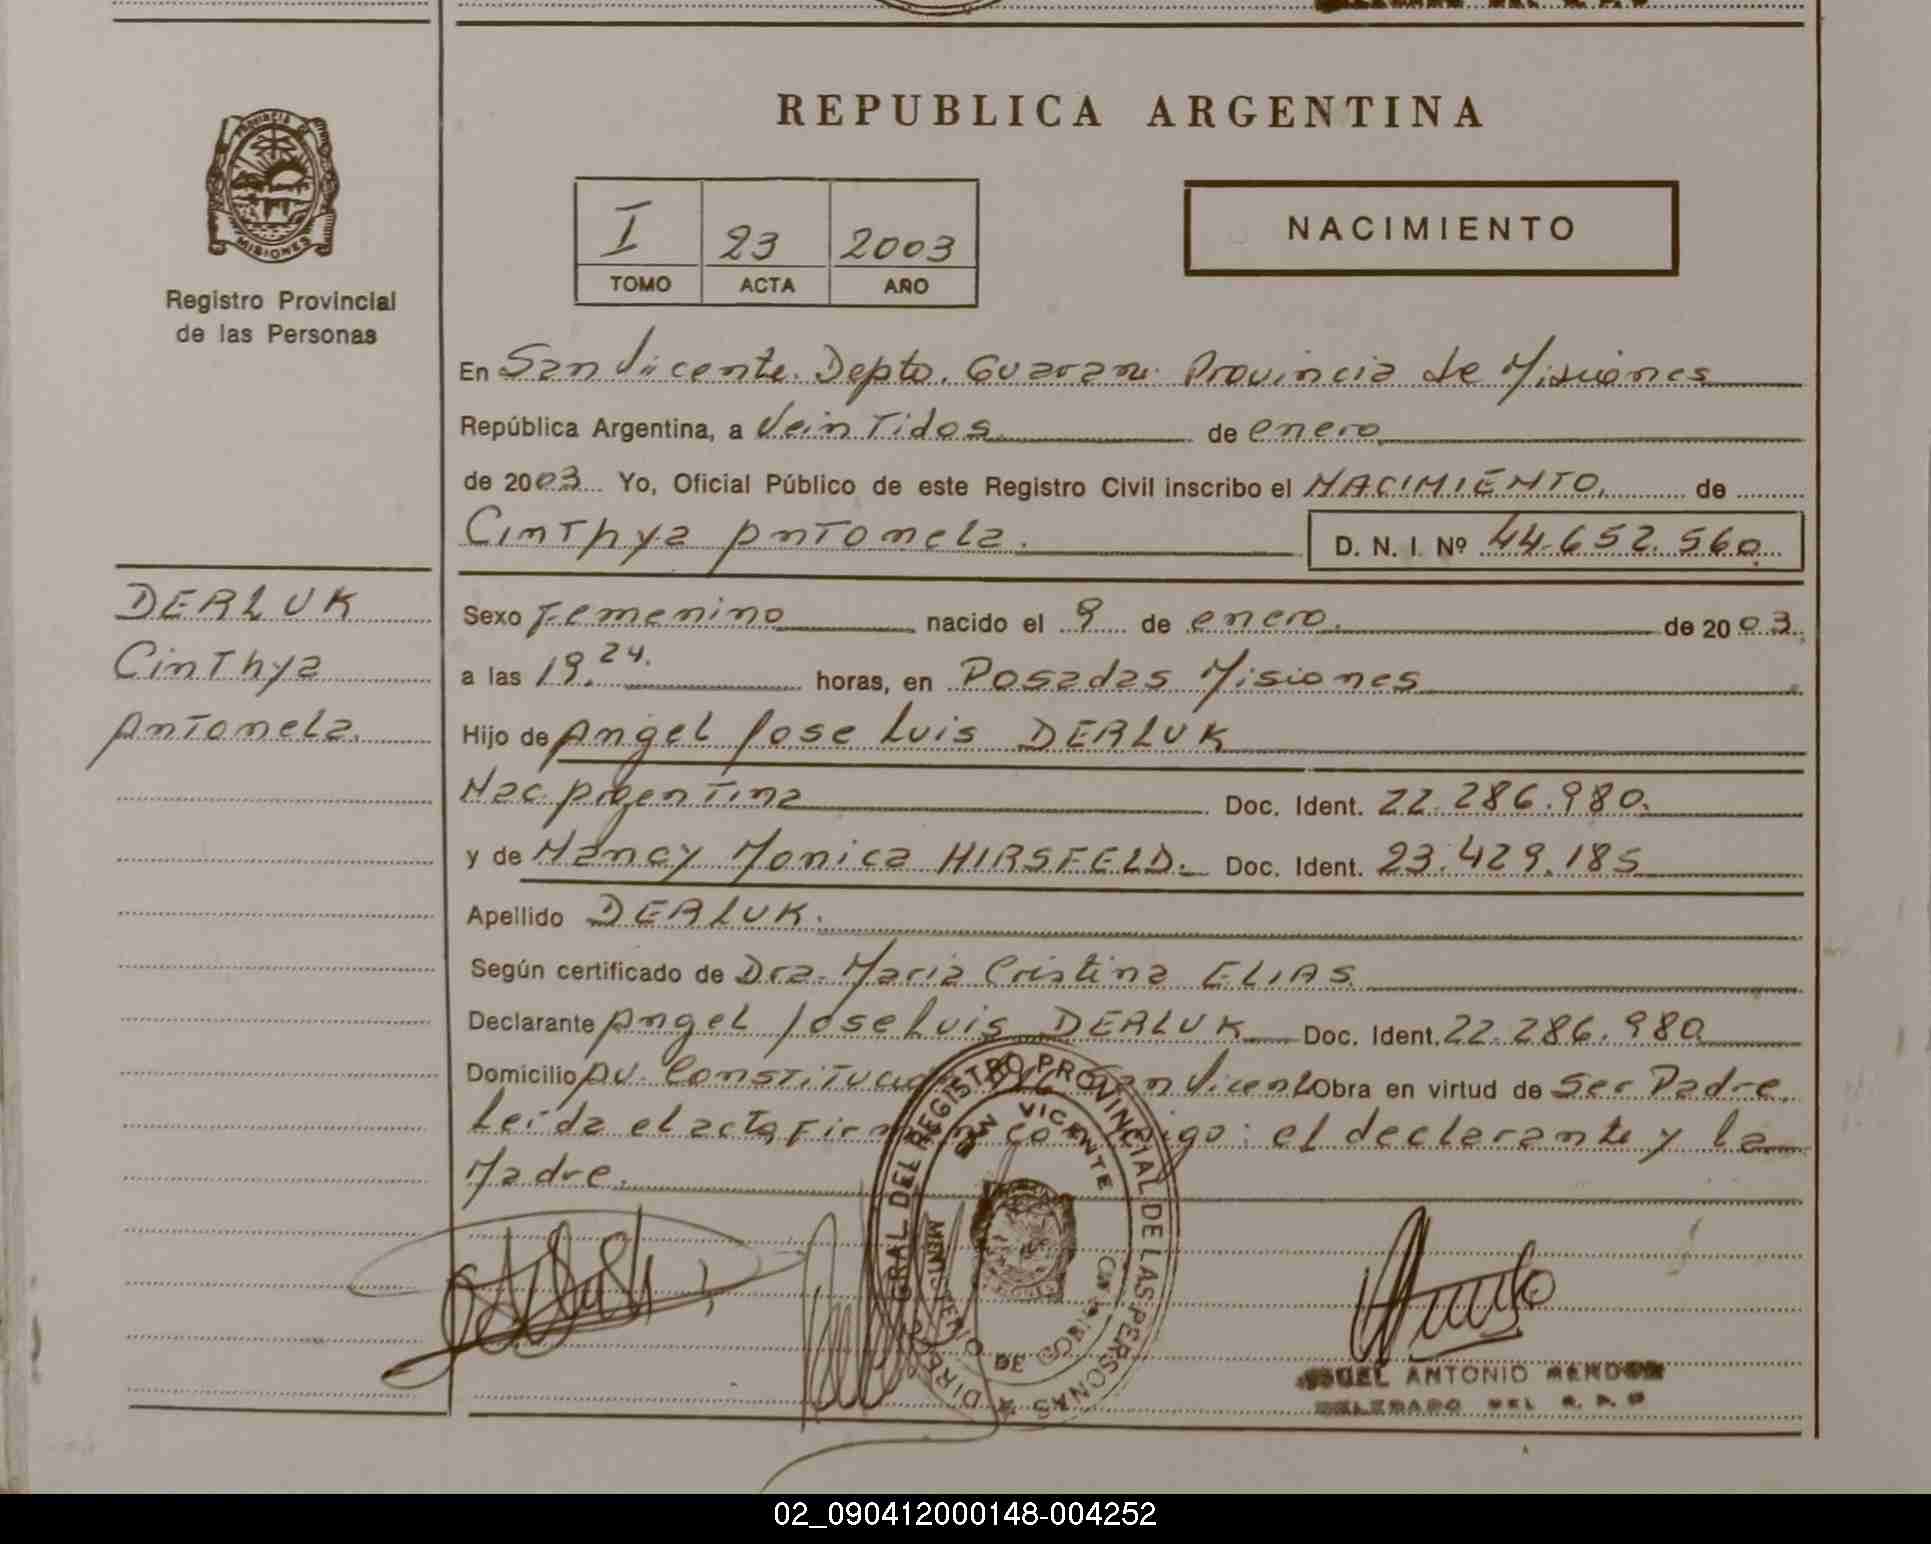 REPUBLICA ARGENTINA
PROVINCIA DE
MISIONES
Registro Provincial
de las Personas
I 23 2003
TOMO ACTA AÑO
NACIMIENTO
En San Vicente. Depto. Guarani Provincia de Misiones
República Argentina, a Veintidos de enero
de 2003 Yo, Oficial Público de este Registro Civil inscribo el NACIMIENTO. de
Cinthya Antonela. D. N. I. Nº 44.652.560
DERLUK
Cinthya
Antonela.
Sexo Femenino nacido el 9 de enero. de 2003.
a las 19.24. horas, en Posadas Misiones
Hijo de Angel Jose Luis DERLUK
Nac. Argentina Doc. Ident. 22.286.980.
y de Nancy Monica HIRSFELD. Doc. Ident. 23.429.185
Apellido DERLUK.
Según certificado de Dra. Maria Cristina ELIAS
Declarante Angel Jose Luis DERLUK Doc. Ident. 22.286.980
Domicilio Av. Constitución San Vicente Obra en virtud de Ser Padre.
Leída el acta, firman conmigo: el declarante y la
Madre.
DIREC. GRAL DEL REGISTRO PROVINCIAL DE LAS PERSONAS
SAN VICENTE
MINISTERIO DE GOBIERNO
ANTONIO
02_090412000148-004252